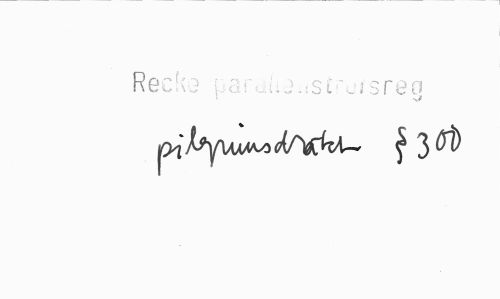 Recke parallellstrofsreg
pilgrimsdräkt § 300